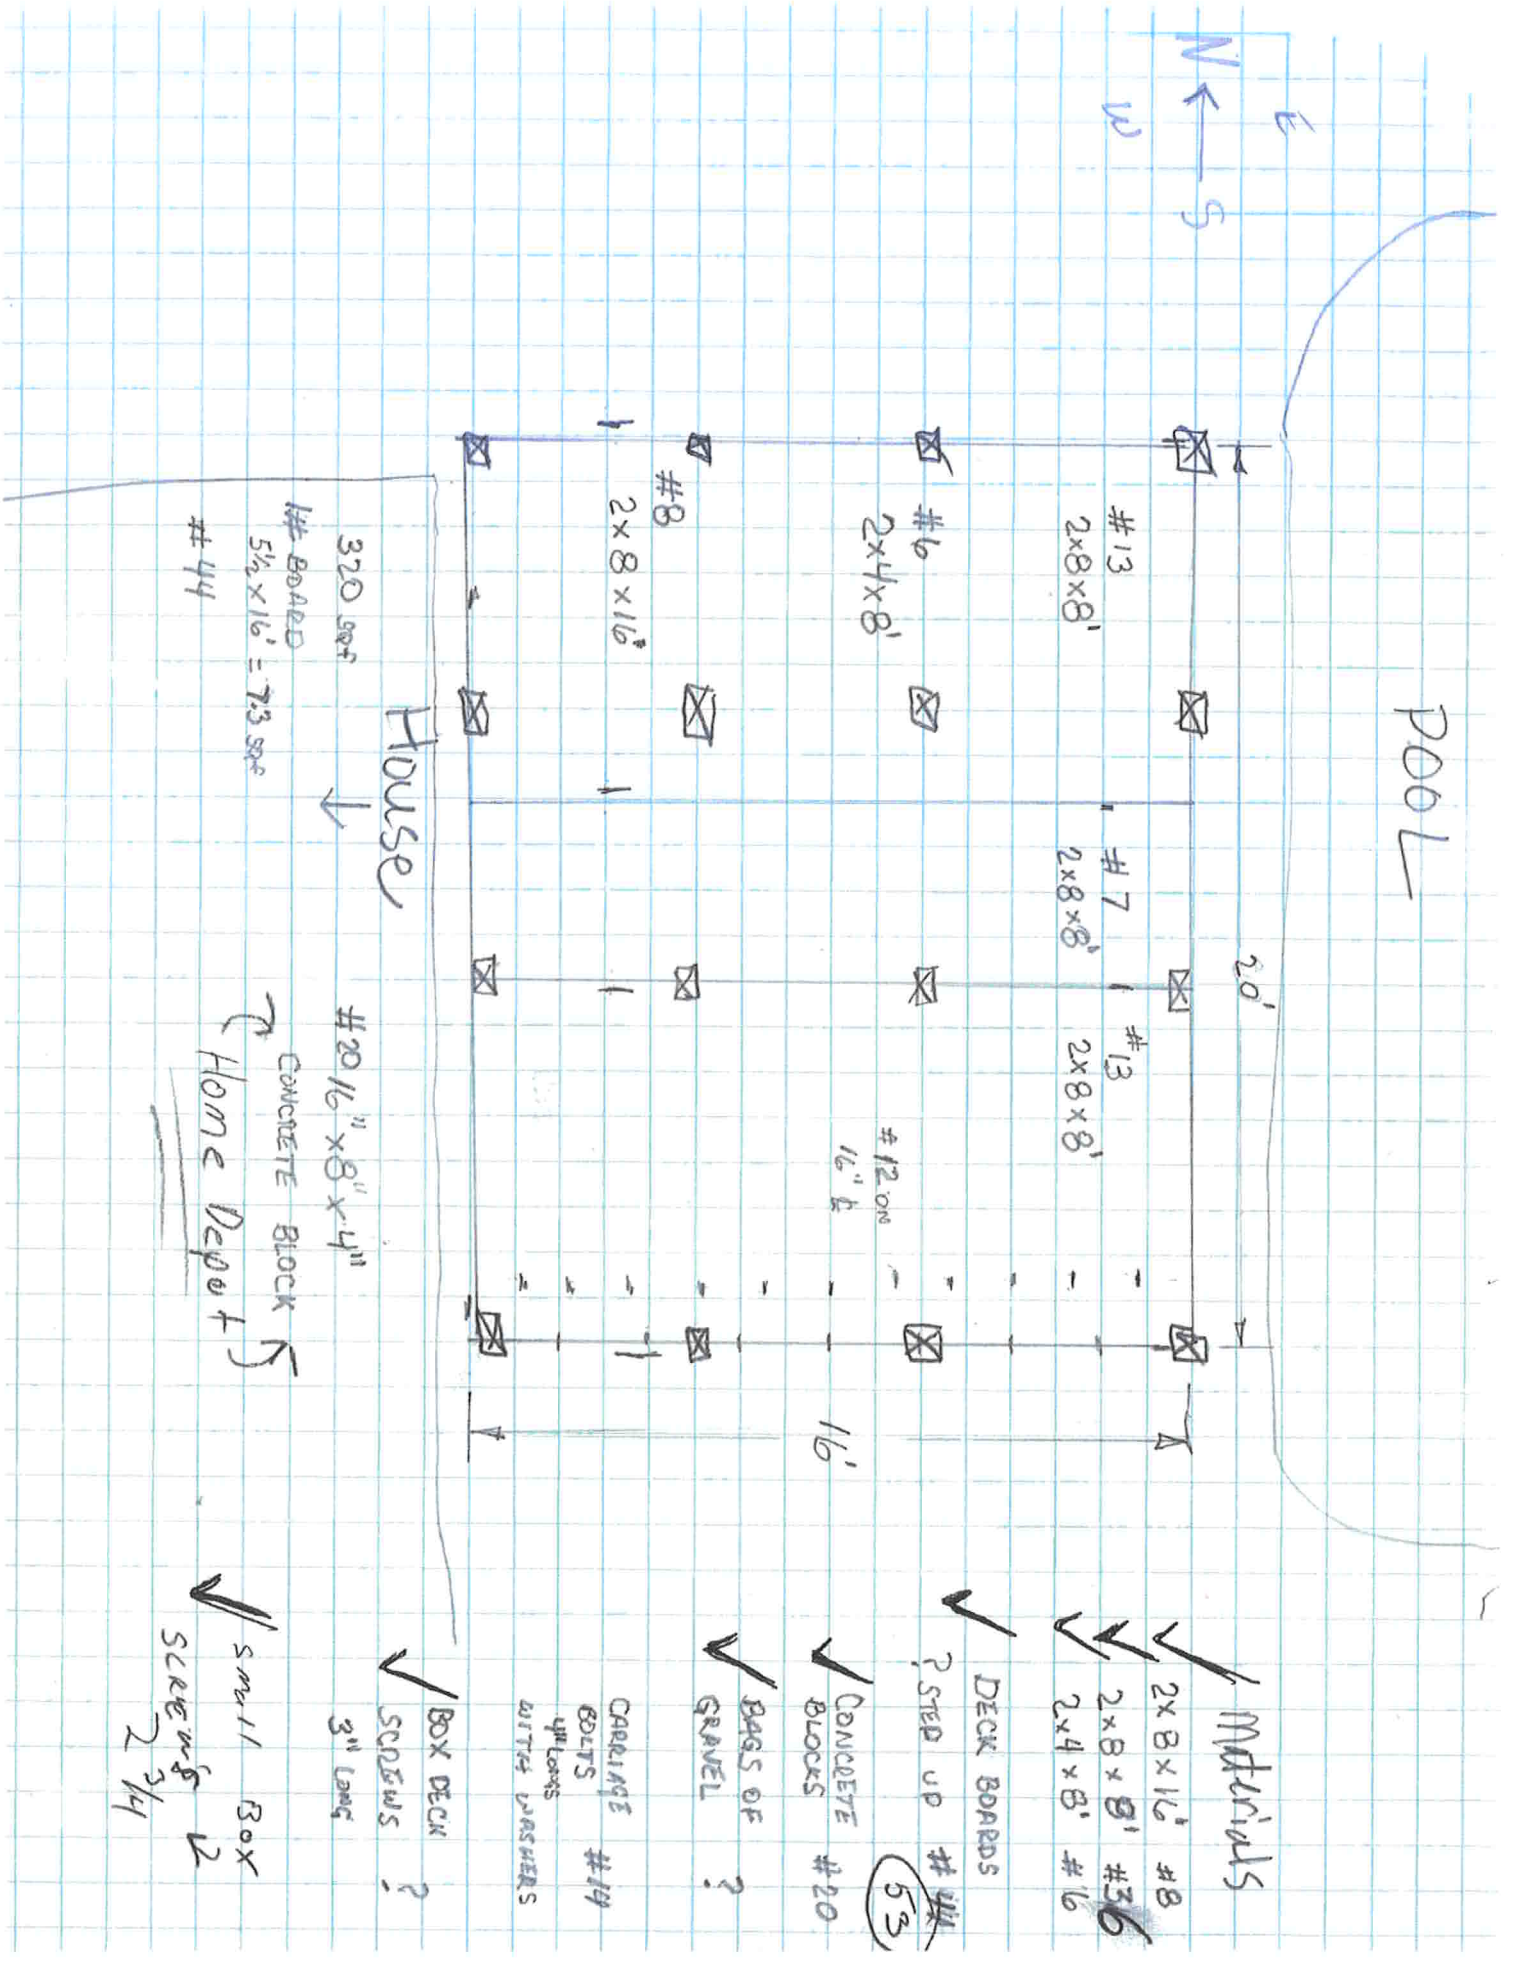 N
E
W
S
POOL
20'
#13
2x8x8'
#7
2x8x8'
#13
2x8x8'
#6
2x4x8'
#12 ON
16" ℄
#8
2x8x16'
16'
House
320 sqf
1# BOARD
5½ x 16' = 7.3 sqf
#44
#20 16" x 8" x 4"
CONCRETE BLOCK
Home Depot
Materials
2x8x16' #8
2x8x8' #36
2x4x8' #16
DECK BOARDS
? STED UP #44
53
CONCRETE
BLOCKS #20
BAGS OF
GRAVEL ?
CARRIAGE
BOLTS #14
4" LONG
WITH WASHERS
BOX DECK
SCREWS ?
3" LONG
Small Box
SCREWS
2 3/4